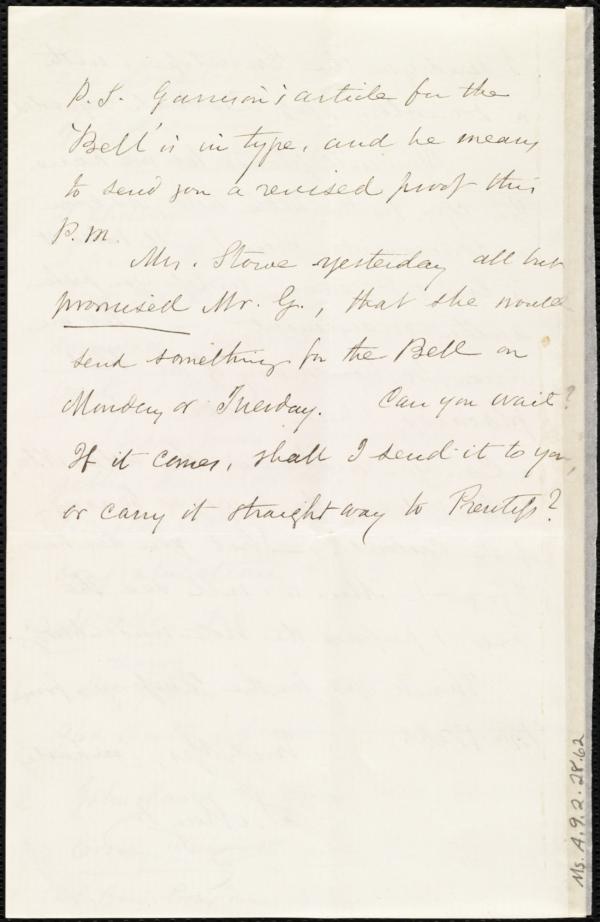 P.S. Garrison's article for the
'Bell' is in type, and he means
to send you a revised proof this
P.M.
Mrs. Stowe yesterday all but
promised Mr. G., that she would
send something for the Bell on
Monday or Tuesday. Can you wait?
If it comes, shall I send it to you,
or carry it straightway to Prentiss?
Ms. A.9.2.28.62